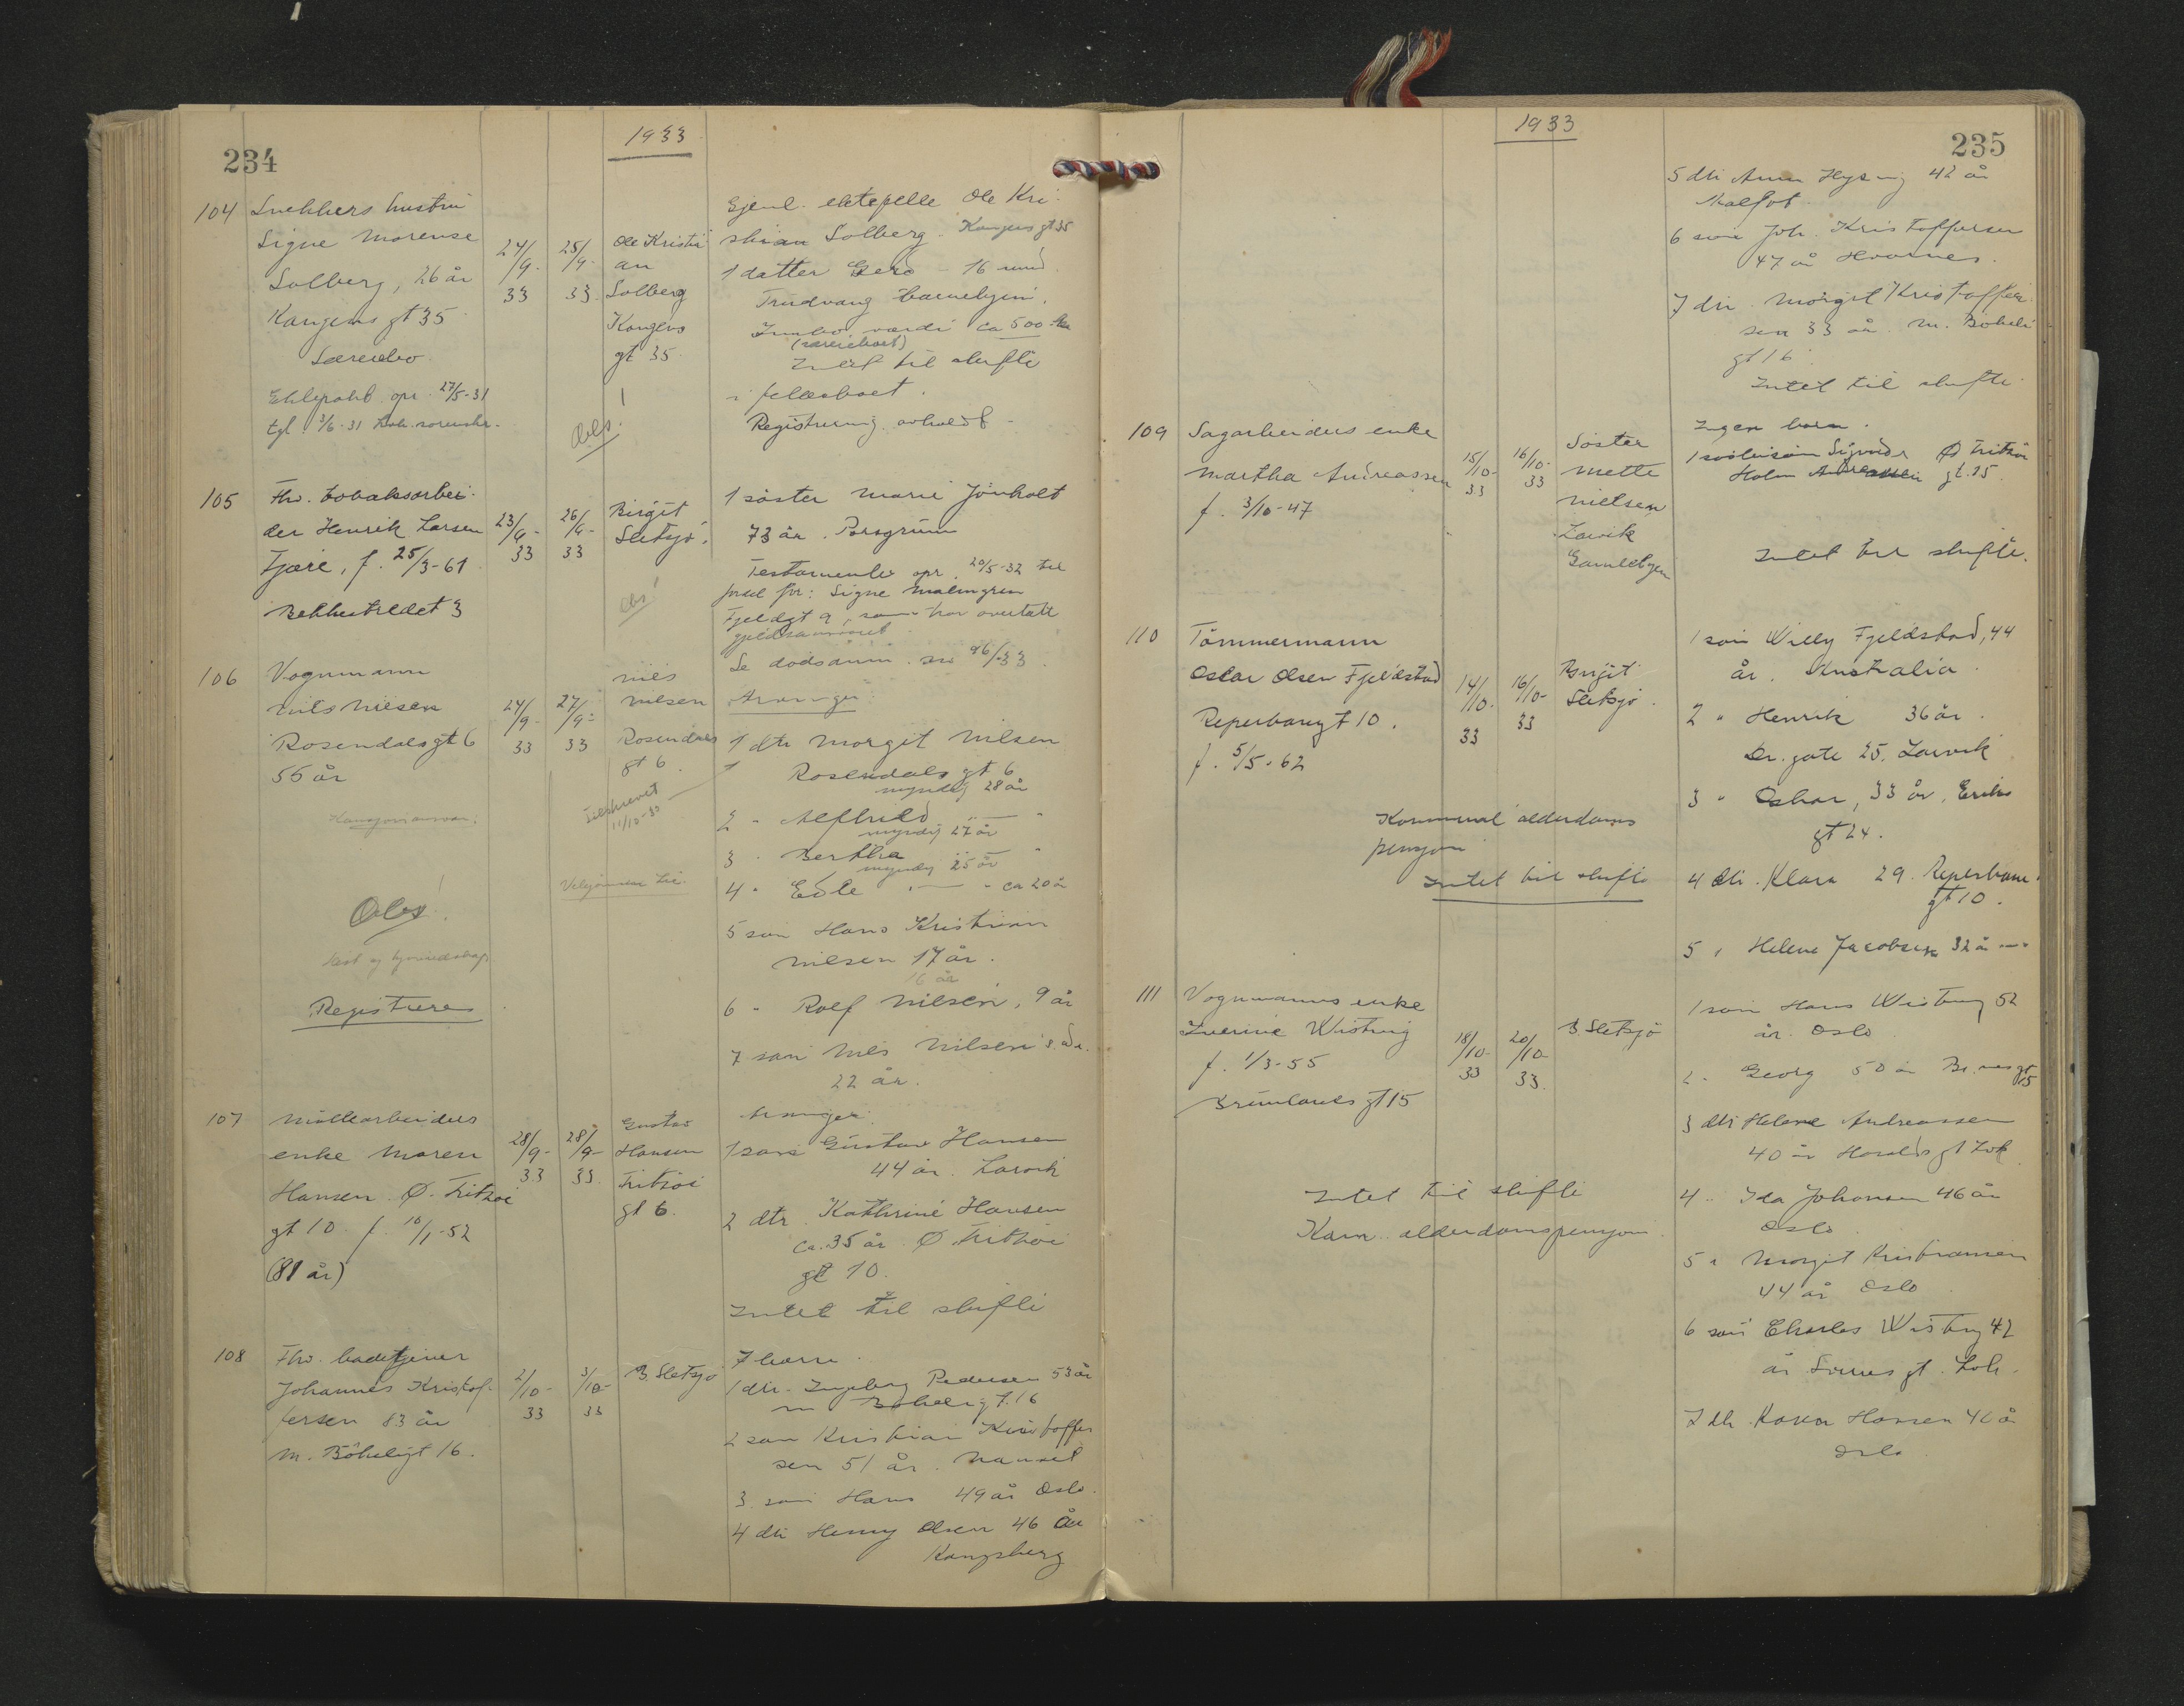 1933
234
104 Snekkers hustru
Signe Marense
Solberg, 26 år
Kongens gt 35
Særeiebo
Ektepakt opr. 27/5-31
tgl. 3/6-31
24/9-33
25/9-33
Ole Kristi
an
Solberg
Kongens
gt 35.
Obs!
Gjenl. ektefelle Ole Kri-
stian Solberg. Kongens gt 35
1 datter Gerd - 16 mnd
Trudvang barnehjem.
Innbo verdi ca 500 kr
(særeieboet)
Intet til skifte
i fellesboet.
Registrering avholdt -
105 Fhv. tobaksarbei-
der Henrik Larsen
Tjøre, f. 25/3-61
Bekkestredet 3
23/9-33
26/9-33
Birgit
Sletsjø.
obs!
1 søster Marie Jönholt
73 år. Porsgrunn
Testamente opr. 20/5-32 til
fordel for: Signe Malmgren
Fjeldgt 9, som har overtatt
gjeldsansvaret
Se dødsanm. no 96/33.
106 Vognmann
Nils Nilsen
Rosendalsgt 6
55 år
Obs!
Registreres
24/9-33
27/9-33
Nils
Nilsen
Rosendals
gt 6.
Tilskrevet
11/10-33
Arvinger:
1 dtr Margit Nilsen
Rosendals gt 6
myndig 28 år
2 " Alfhild
myndig 27 år
3 " Bertha
myndig 25 år
4 " Edle - " - ca 20 år
5 sønn Hans Kristian
Nilsen 17 år.
16 år
6 " Rolf Nilsen, 9 år
7 sønn Nils Nilsen
22 år.
107 Møllearbeiders
enke Maren
Hansen Ø. Fritzøe
gt 10. f. 10/1-52
(81 år)
28/9-33
28/9-33
Gustav
Hansen
Fritzøe
gt 6.
Arvinger:
1 sønn Gustav Hansen
44 år. Larvik
2 dtr. Kathrine Hansen
ca. 35 år Ø. Fritzøe
gt 10.
Intet til skifte
108 Fhv. badetjener
Johannes Kristof-
fersen 83 år
m. Bökeligt 16.
2/10-33
3/10-33
B. Sletsjø
7 barn.
1 dtr. Ingeborg Pedersen 53 år
m Bökeligt. 16
2 sønn Kristian Kristoffer
sen 51 år. Nanset
3 sønn Hans 49 år Oslo.
4 dtr Henny Olsen 46 år
Kongsberg
1933
235
5 dtr Anna 42 år
6 sønn Joh. Kristoffersen
47 år Hvarnes.
7 dtr. Margit Kristoffer-
sen 33 år. m. Bökeli
gt 16.
Intet til skifte
109 Sagarbeiders enke
Martha Andreassen
f. 3/10-47
15/10-33
16/10-33
Søster
Mette
Nielsen
Larvik
Gamlehjem
Ingen barn.
1 søstersønn Sigurd Ø Fritzöe
Holm gt. 25.
Intet til skifte.
110 Tømmermann
Oscar Olsen Fjeldstad
Reperbangt 10.
f. 5/5-62
14/10-33
16/10-33
Birgit
Sletsjø.
Kommunal alderdoms
pensjon
Intet til skifte
1 sønn Willy Fjeldstad, 44
år. Australia
2 " Henrik 36 år.
Dr. gate 25. Larvik
3 " Oskar, 33 år, Eriks
gt 24.
4 dtr. Klara 29. Reperbane
gt 10.
5 " Helene Jacobsen 32 år
111 Vognmanns enke
Inerine Wisting
f. 1/3-55
Brunlanesgt 15
18/10-33
20/10-33.
B Sletsjö
Intet til skifte
Kom. alderdomspensjon.
1 sønn Hans Wisting 52
år. Oslo
2 " Georg 50 år Br.nesgt
15
3 dtr Helene Andreassen
40 år Haralds gt Lvk
4 " Ida Johansen 46 år
Oslo
5 " Margit Kristiansen
44 år Oslo
6 sønn Charles Wisting 42
år gt.
7 dtr. Hansen 40 år
Oslo